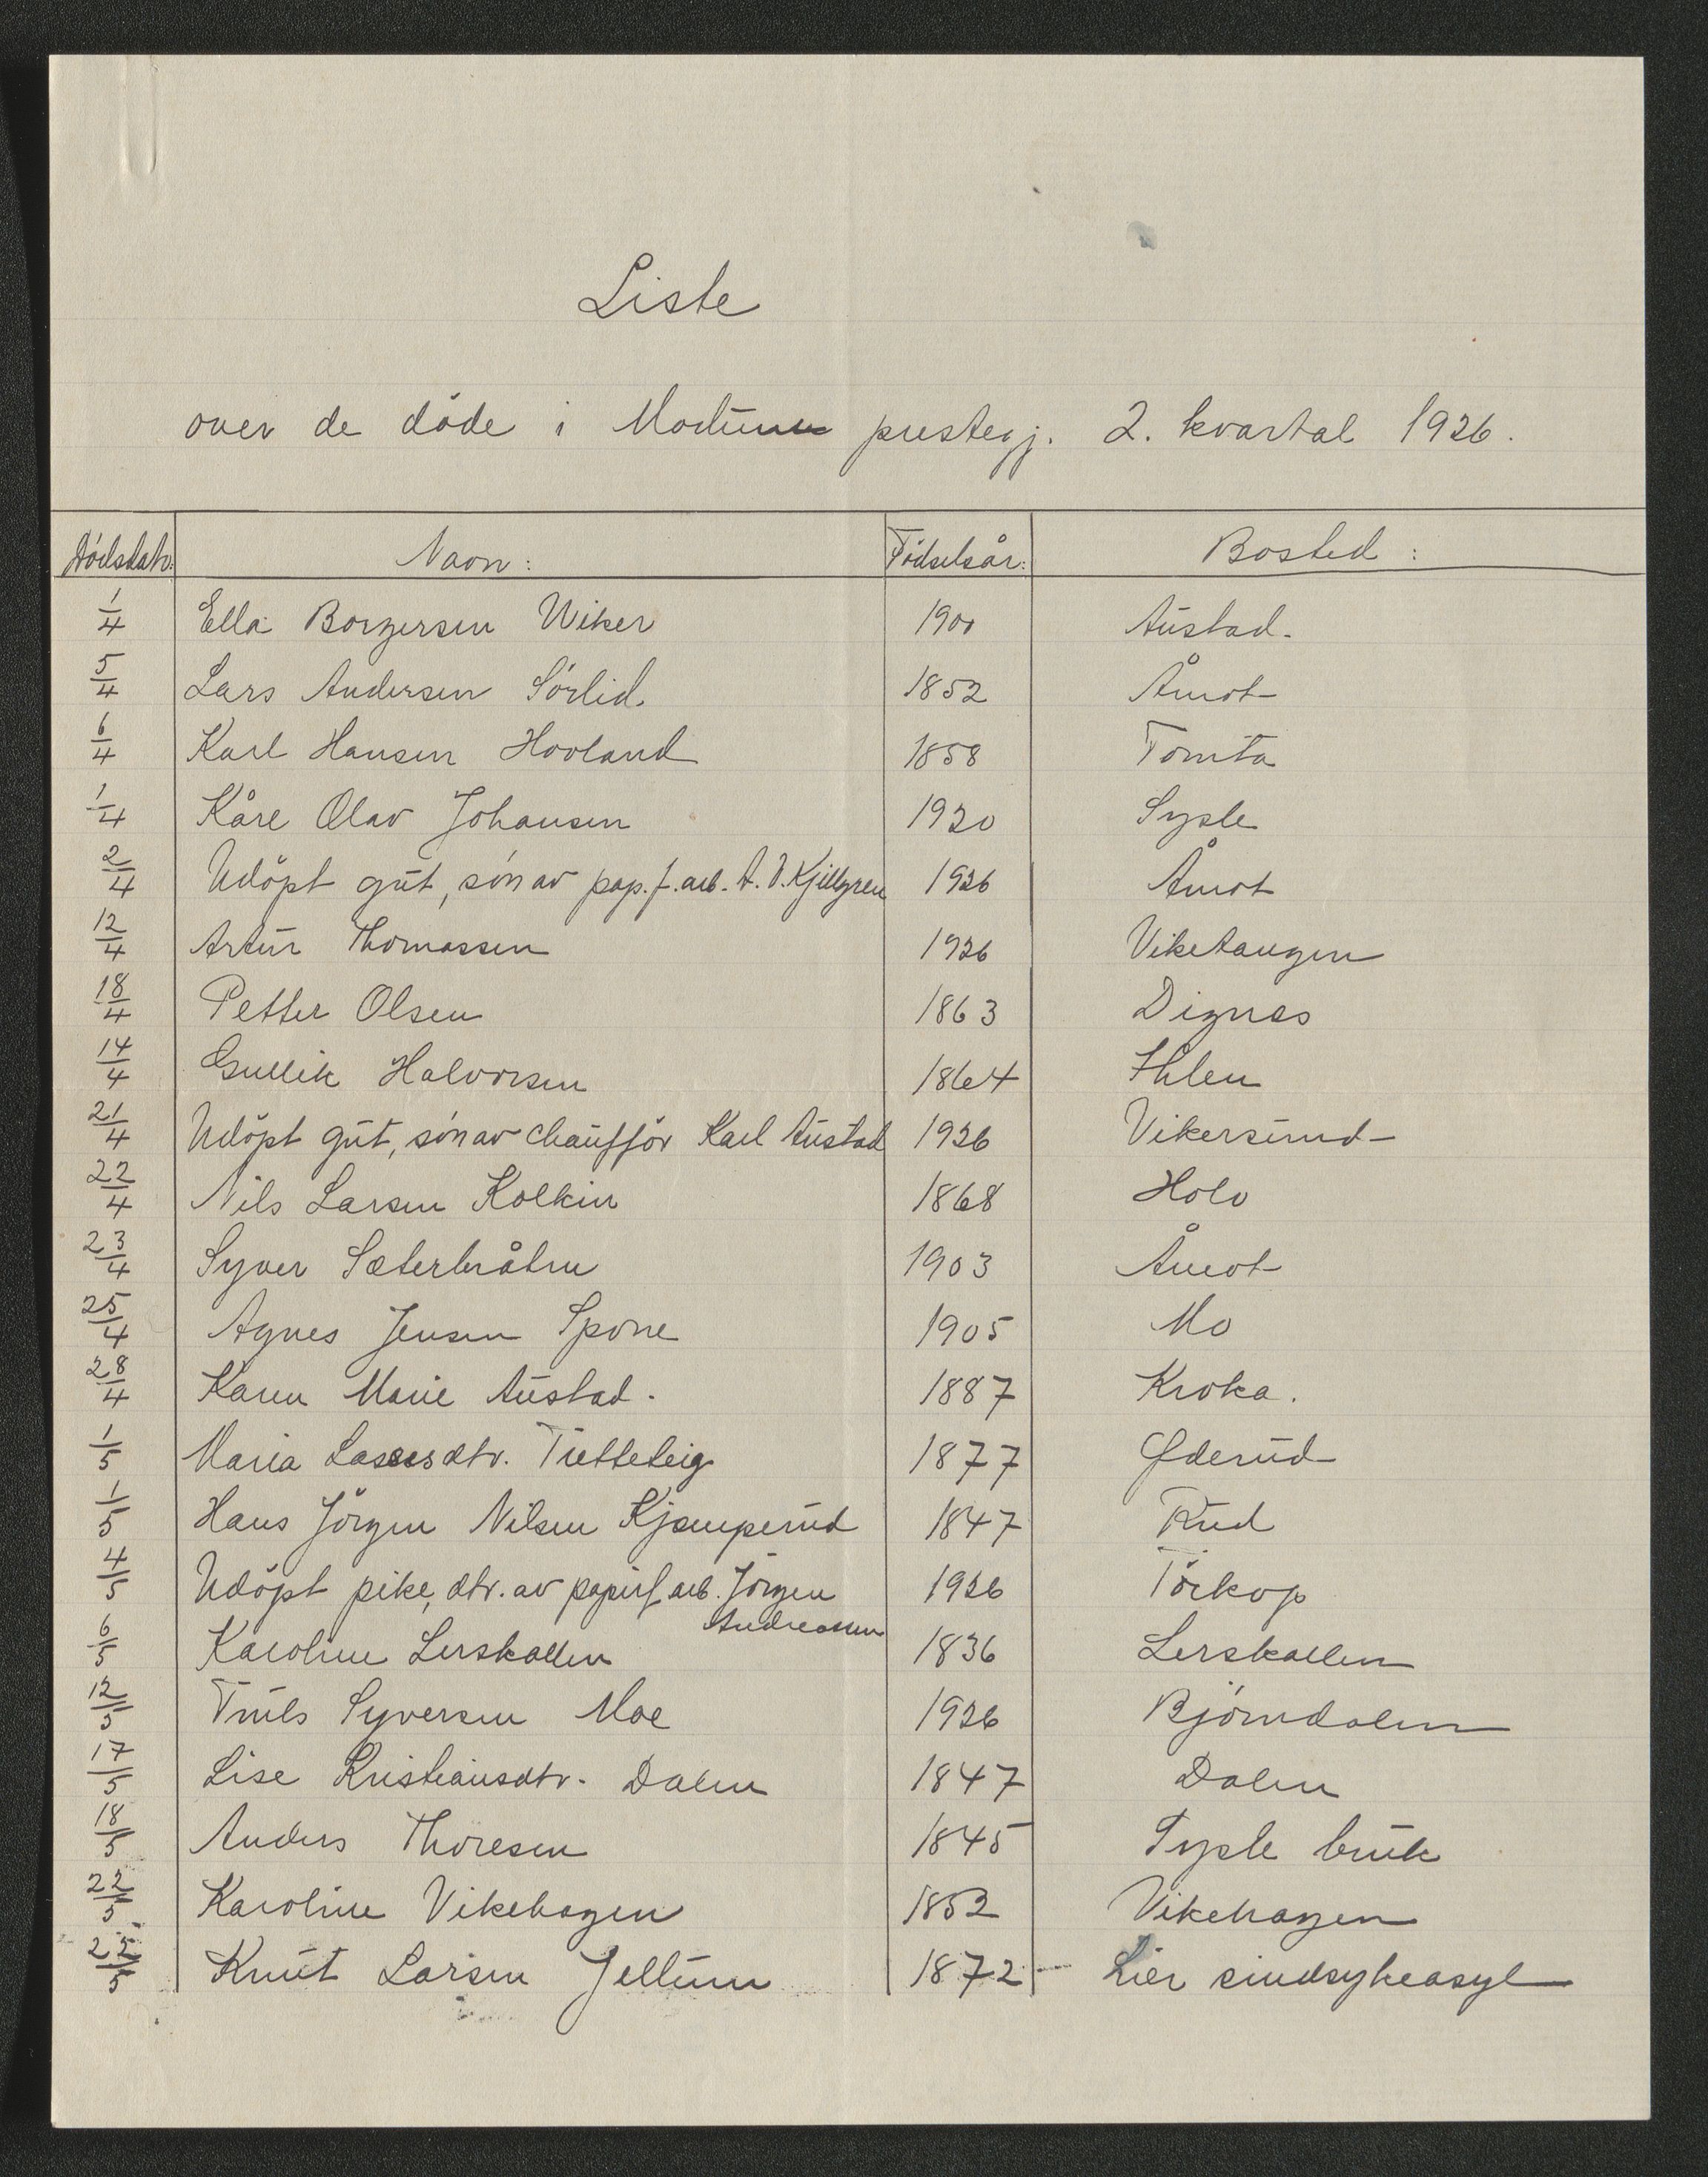 Liste
over de döde i Modum prestegj. 2. kvartal 1926.
Dödsdato: Navn: Födselsår: Bosted:
1/4 Ella Borgersen Wiker 1900 Austad.
5/4 Lars Andersen Sörlid. 1852 Åmot
6/4 Karl Hansen Hovland 1858 Tomta
1/4 Kåre Olav Johansen 1920 Sysle
2/4 Udöpt gut, sön av pap.f.arb. A. V. Kjellgren 1926 Åmot
12/4 Artur Thomassen 1926 Viketangen
18/4 Petter Olsen 1863 Dignes
14/4 Gullik Halvorsen 1864 Ihlen
21/4 Udöpt gut, sön av chaufför Karl Austad 1926 Vikersund
22/4 Nils Larsen Kolkin 1868 Hole
23/4 Syver Sæterbråten 1903 Åmot
25/4 Agnes Jensen Spone 1905 Mo
28/4 Karen Marie Austad. 1887 Kroka.
1/5 Maria Lassesdtr. Tretteteig 1877 Øderud
1/5 Hans Jörgen Nilsen Kjemperud 1847 Rud
4/5 Udöpt pike, dtr. av papirf.arb. Jörgen 1926 Törkop
Andreassen
6/5 Karoline Lerskallen 1836 Lerskallen
12/5 Truls Syversen Moe 1926 Björndalen
17/5 Lise Kristiansdtr. Dalen 1847 Dalen
18/5 Anders Thoresen 1845 Sysle bruk
22/5 Karoline Vikehagen 1852 Vikehagen
25/5 Knut Larsen Jellum 1872 - Lier sindsykeasyl